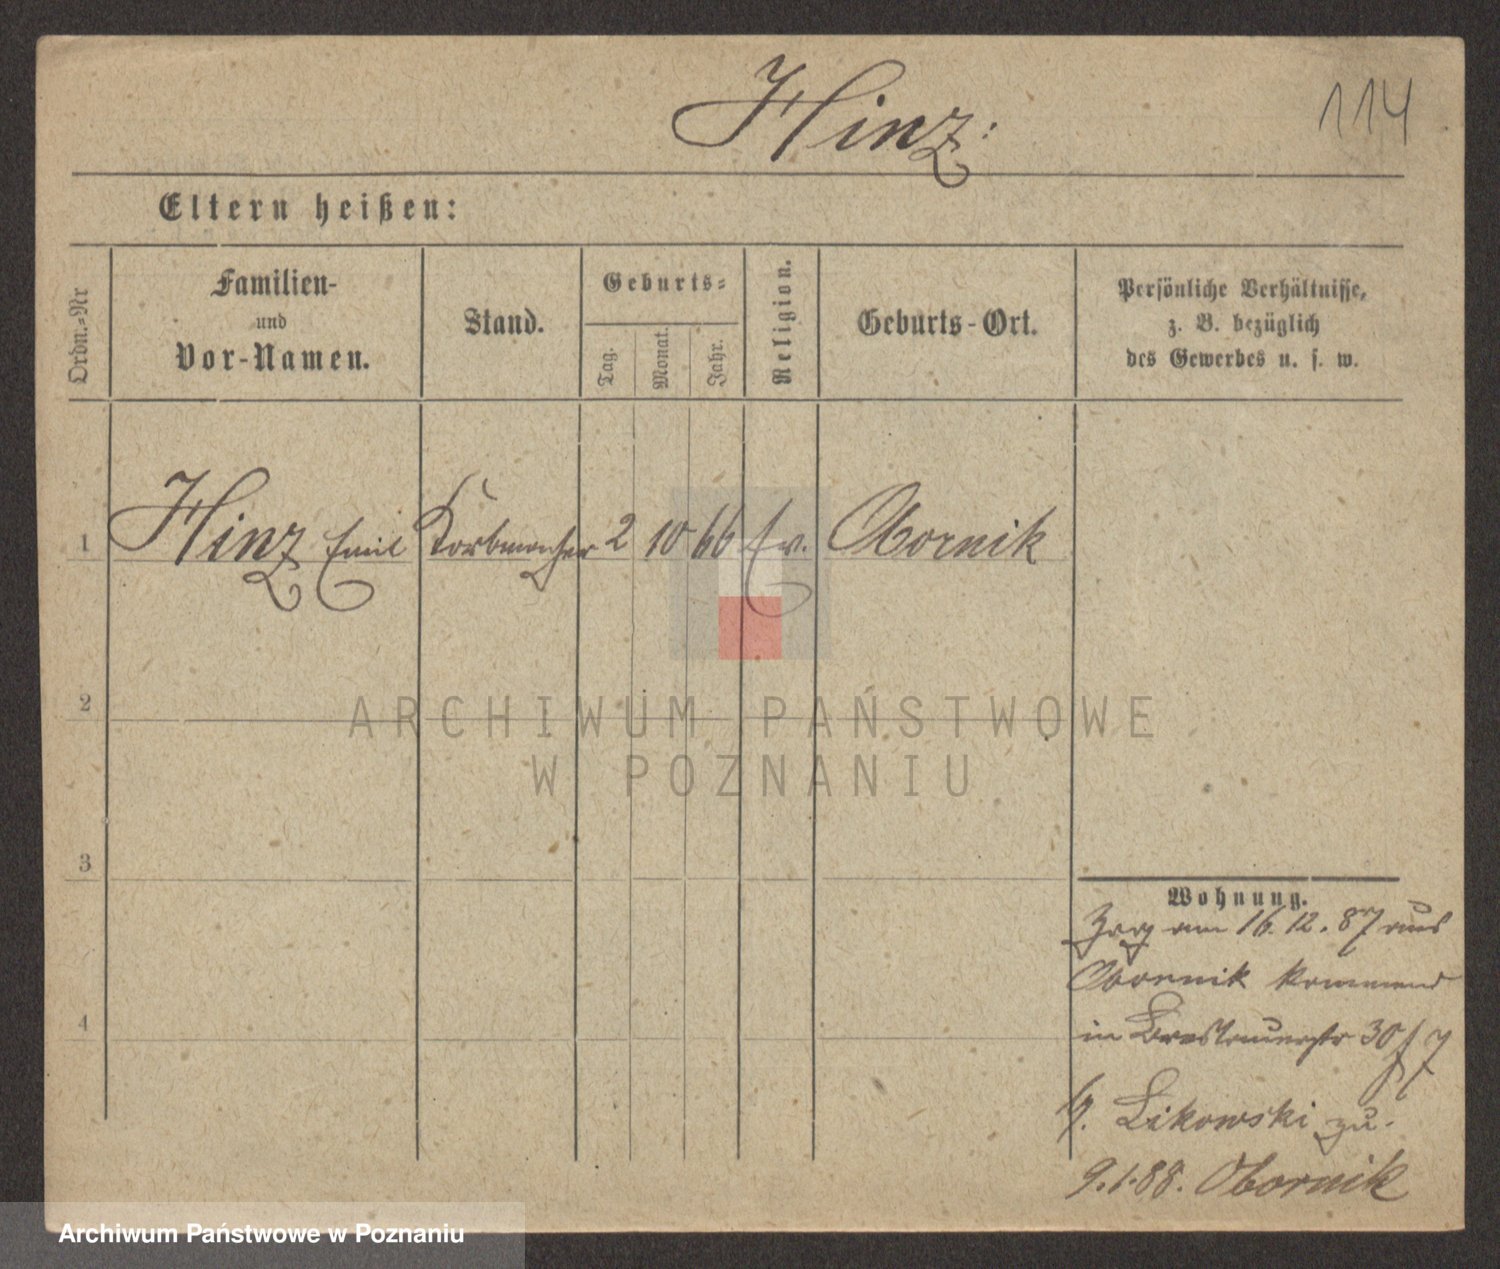 Hinz:
114
Eltern heißen:
Ordn.-Nr
Familien-
und
Vor-Namen.
Stand.
Geburts-
Tag.
Monat.
Jahr.
Religion.
Geburts-Ort.
Persönliche Verhältnisse,
z. B. bezüglich
des Gewerbes u. s. w.
1 Hinz Emil Korbmacher 2 10 66 Ev. Obornik
2
3
4
Wohnung.
Zog am 16. 12. 87 aus
Obornik kommend
in 30
Likowski zu.
9.1.88. Obornik
ARCHIWUM PAŃSTWOWE
W POZNANIU
Archiwum Państwowe w Poznaniu